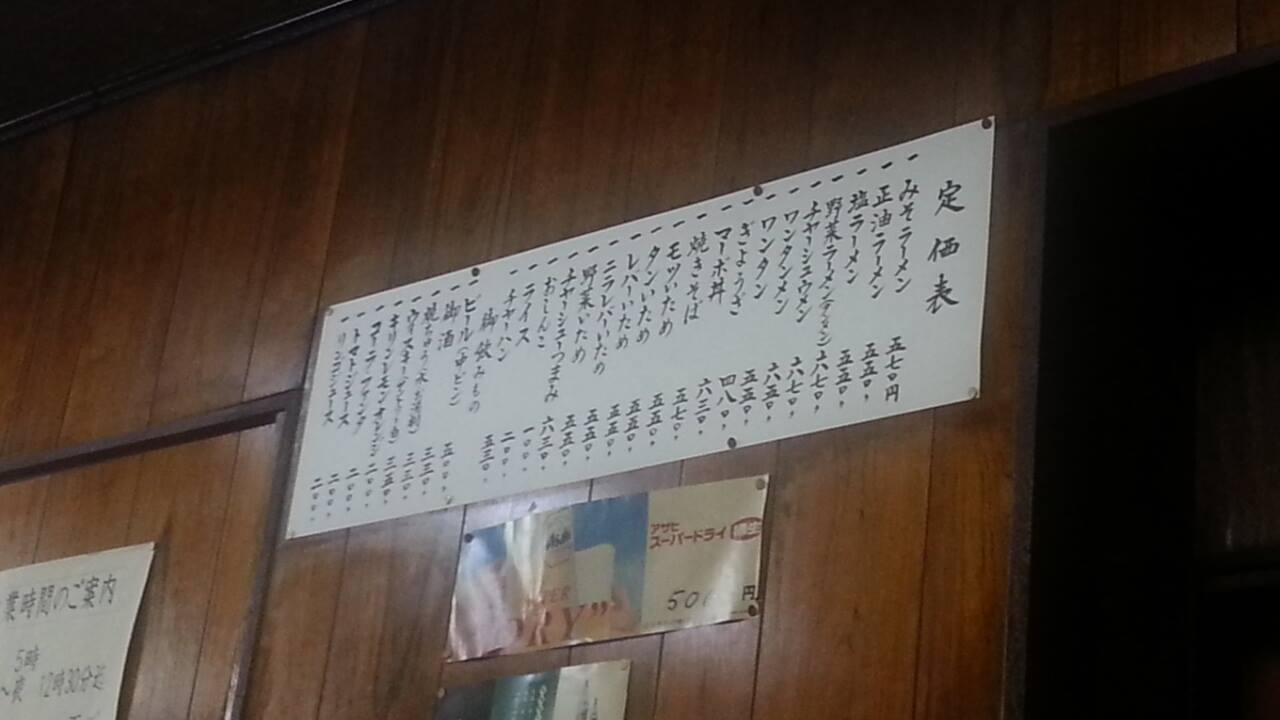 定価表
一 みそラーメン 五七〇円
一 正油ラーメン 五五〇〃
一 塩ラーメン 五五〇〃
一 野菜ラーメン 六七〇〃
一 チャーシュウメン 六七〇〃
一 ワンタンメン 六五〇〃
一 ワンタン 五五〇〃
一 ぎょうざ 四八〇〃
一 マーボ丼 六三〇〃
一 焼きそば 五七〇〃
一 モツいため 五五〇〃
一 タンいため 五五〇〃
一 レバーいため 五五〇〃
一 ニラレバーいため 五五〇〃
一 野菜いため 五五〇〃
一 チャーシューつまみ 六三〇〃
一 おしんこ 一〇〇〃
一 ライス 二〇〇〃
一 チャーハン 五三〇〃
御飲みもの
一 ビール(中ビン) 五〇〇〃
一 御酒 三三〇〃
一 焼ちゅう 三三〇〃
一 ウィスキー 三五〇〃
一 キリンレモン オレンジ 二〇〇〃
一 コーラ ファンタ 二〇〇〃
一 トマトジュース 二〇〇〃
一 リンゴジュース 二〇〇〃
アサヒ
スーパードライ
50 円
Asahi
DRY"
業時間のご案内
5時
〜夜 12時30分迄